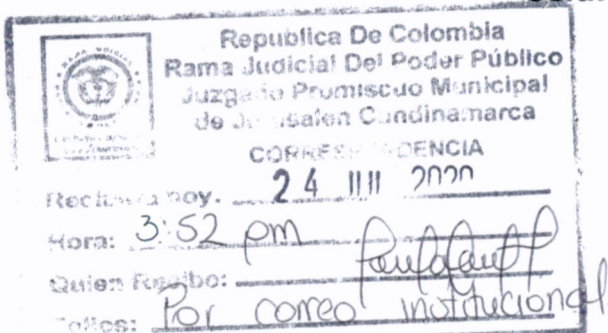 Republica De Colombia
Rama Judicial Del Poder Público
Juzgado Promiscuo Municipal
de Jerusalen Cundinamarca
CORRESPONDENCIA
Recibido hoy. 24 JUL 2020
Hora: 3:52 pm
Quien Recibo:
Folios: Por correo institucional